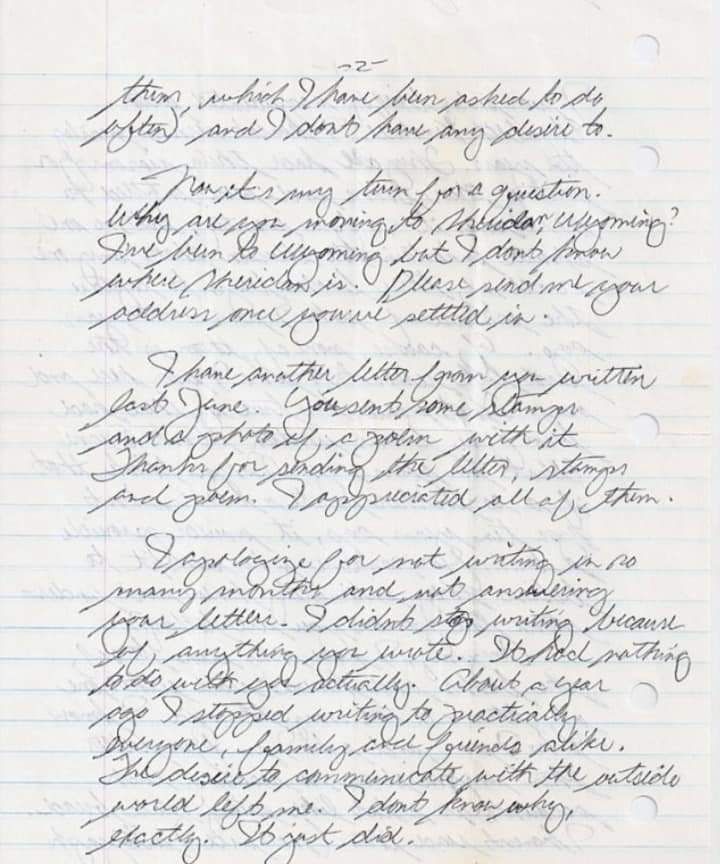 -2-
them, which I have been asked to do
often) and I dont have any desire to.
Now it's my turn for a question.
Why are you moving to Sheridan, Wyoming?
I've been to Wyoming but I dont know
where Sheridan is. Please send me your
address once you've settled in.
I have another letter from you written
last June. You sent some stamps
and a photo of a poem with it.
Thanks for sending the letter, stamps
and poem. I appreciated all of them.
I apologize for not writing in so
many months and not answering
your letters. I didnt stop writing because
of anything you wrote. It had nothing
to do with you actually. About a year
ago I stopped writing to practically
everyone, family and friends alike.
The desire to communicate with the outside
world left me. I dont know why,
exactly. It just did.